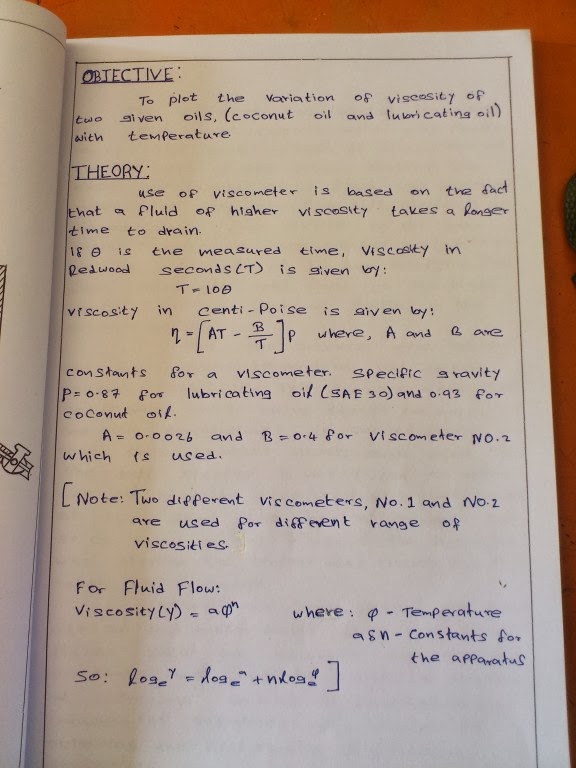 OBJECTIVE:
To plot the variation of viscosity of
two given oils, (coconut oil and lubricating oil)
with temperature
THEORY:
use of viscometer is based on the fact
that a fluid of higher viscosity takes a longer
time to drain.
If θ is the measured time, viscosity in
Redwood seconds (T) is given by:
T = 10θ
viscosity in centi-Poise is given by:
η = [AT - B/T]ρ where, A and B are
constants for a viscometer. Specific gravity
ρ = 0.87 for lubricating oil (SAE 30) and 0.93 for
coconut oil.
A = 0.0026 and B = 0.4 for viscometer NO.2
which is used.
[Note: Two different viscometers, No.1 and NO.2
are used for different range of
viscosities.
For Fluid Flow:
Viscosity(γ) = aφⁿ where: φ - Temperature
a & n - Constants for
the apparatus
So: logₑγ = logₑa + n logₑφ]